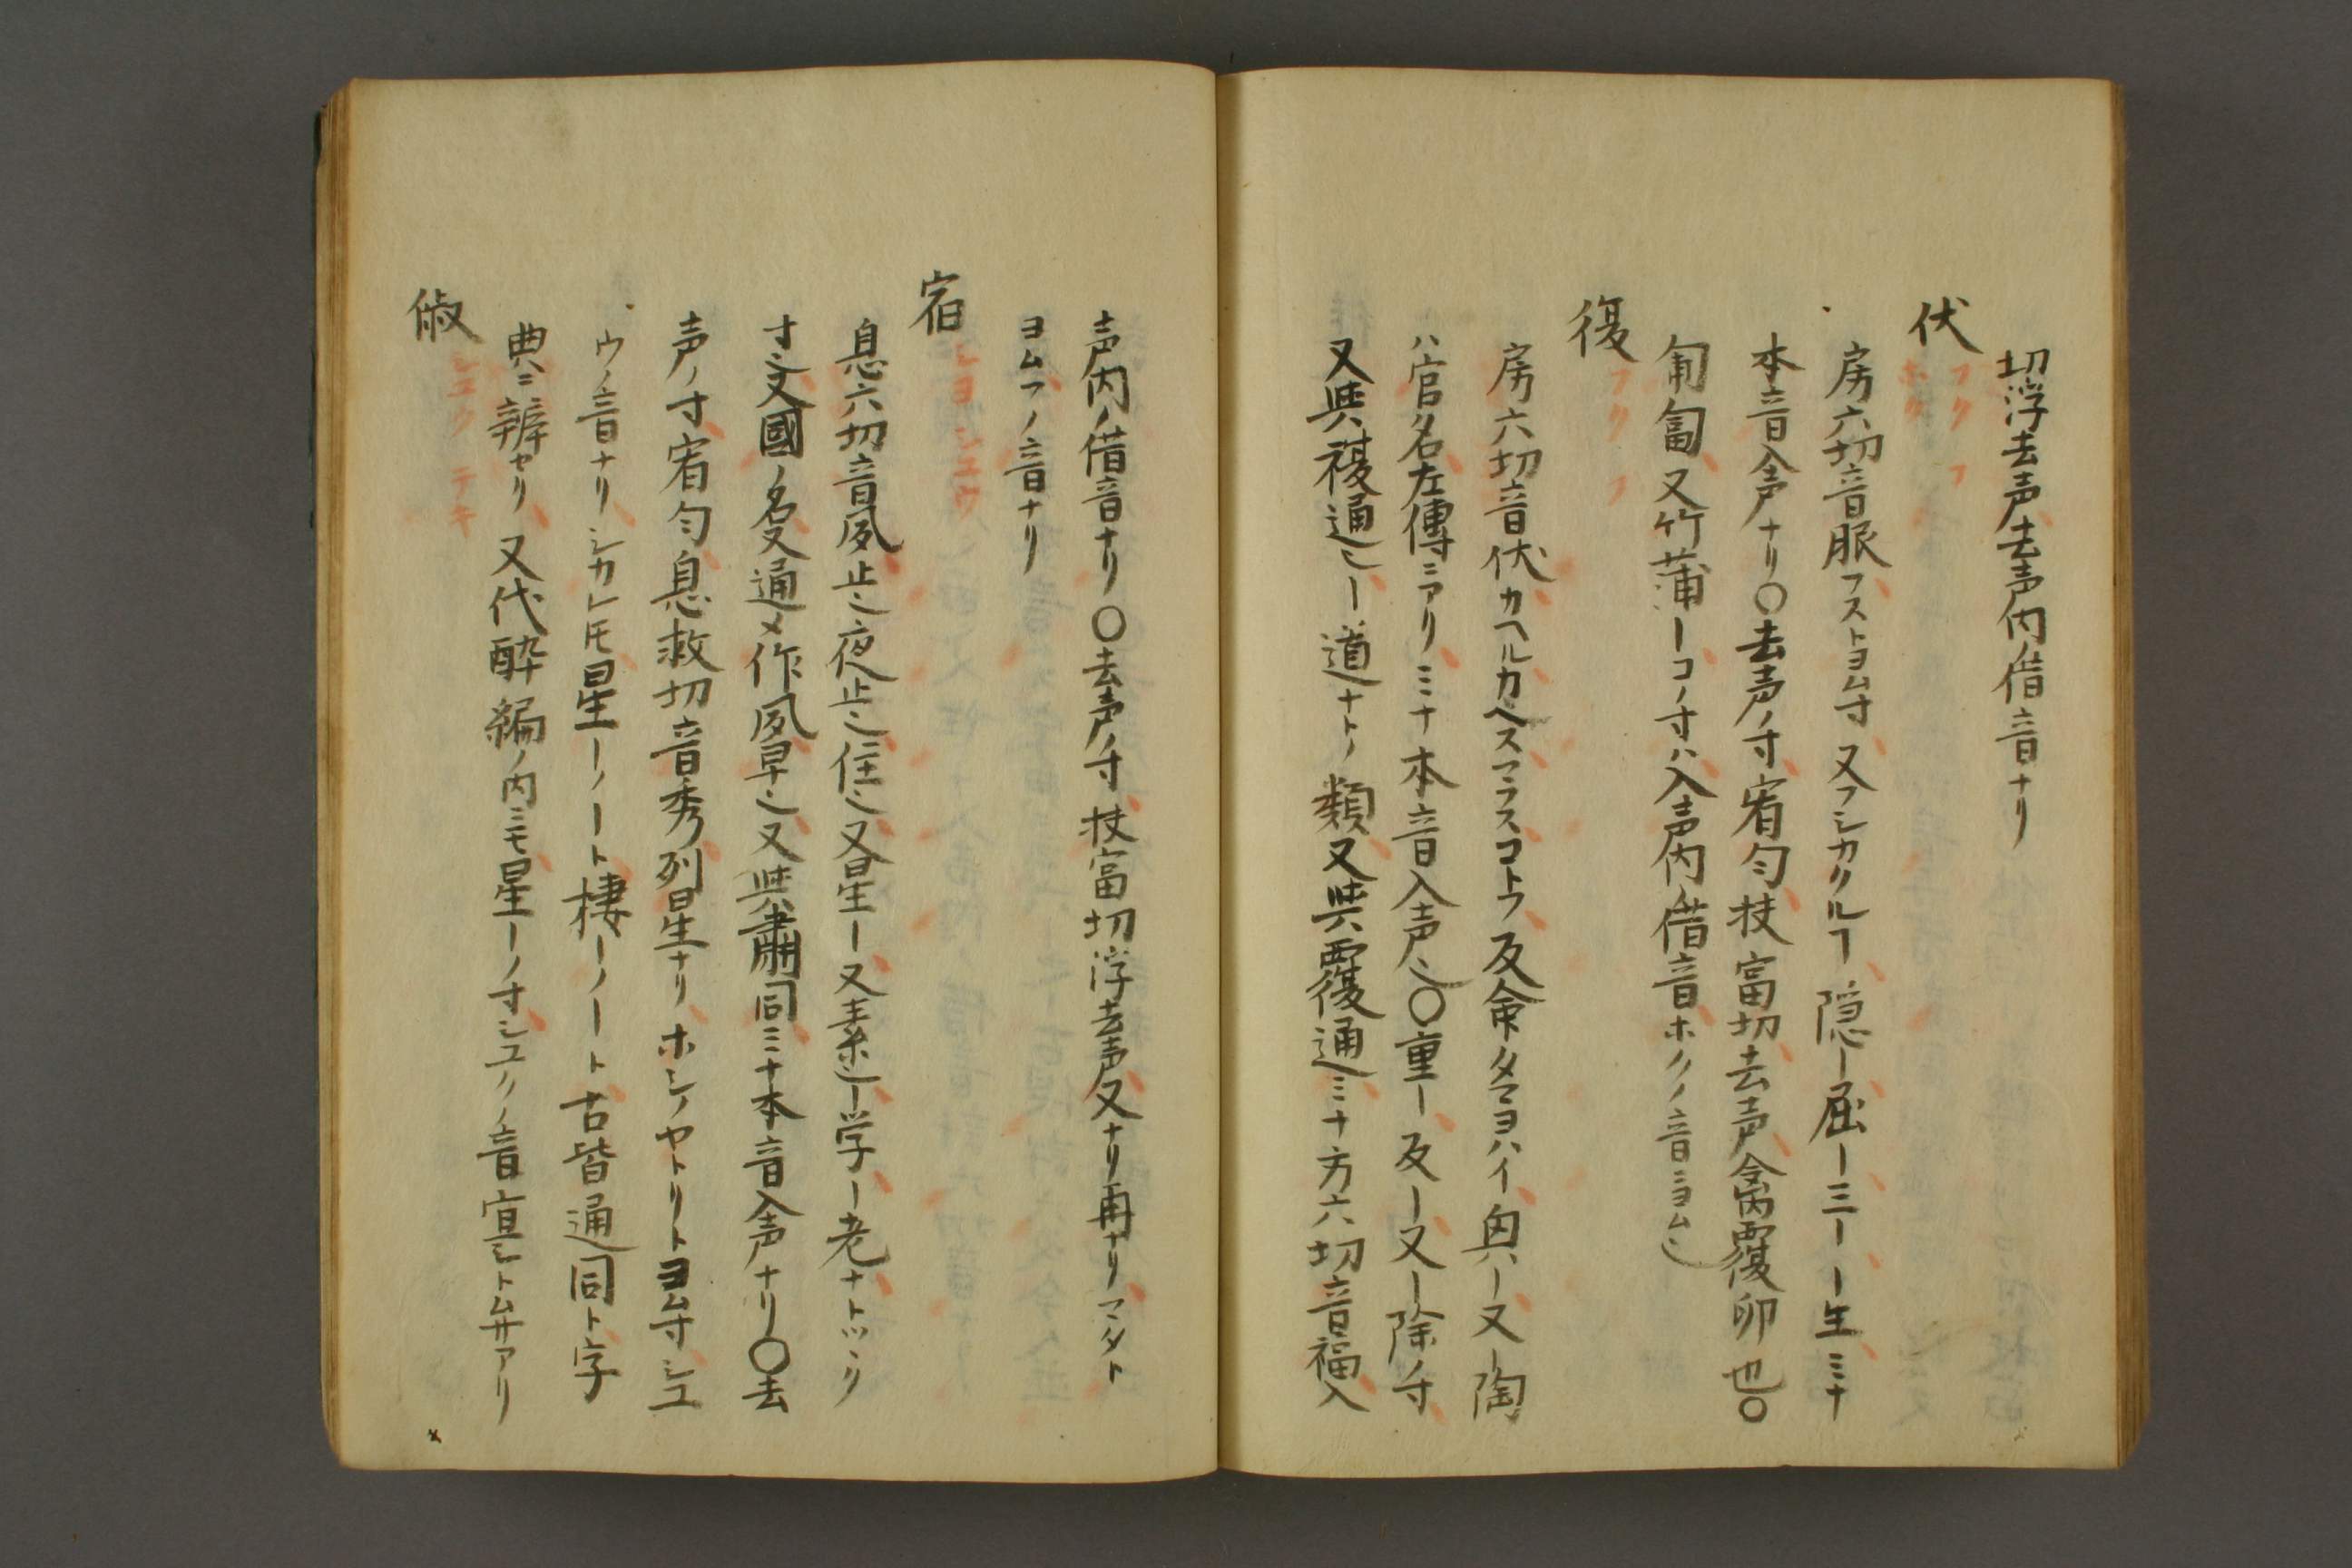 切浮去声去声内ノ借音ナリ
伏
フク フ
ホク
房六切音服フストヨム寸又フシカクルヿ隠ー屈ー三ーー生ミナ
本音入声ナリ〇去声ノ寸宥勻扶富切去声禽覆卵也〇
匍匐又竹蒲ーコノ寸ハ入声内ノ借音ホクノ音ヨム也
復
フク フ
房六切音伏カヘルカヘスマラスコトフ反命タマヨハイ奥ー又陶
ハ官名左傳ニアリミナ本音入声也〇重ー反ー又ー除ノ寸
又與複通也ー道ナトノ類又與覆通ミナ方六切音福入
声内ノ借音ナリ〇去声ノ寸扶富切浮去声又ナリ再ナリマタト
ヨムフノ音ナリ
宿
シヨ シユウ
息六切音夙止也夜止也住也又星ー又素也ー学ー老ナトツヽク
寸又國ノ名又通メ作夙早也又與肅同ミナ本音入声ナリ〇去
声ノ寸宥勻息救切音秀列星ナリホシノヤトリトヨム寸シユ
ウノ音ナリシカレ𪜈星ーノート棲ーノート古皆通同ト字
典ニ辨セリ又代酔編ノ内ニモ星ーノ寸シユクノ音寔シトムサアリ
俶
シユク テキ